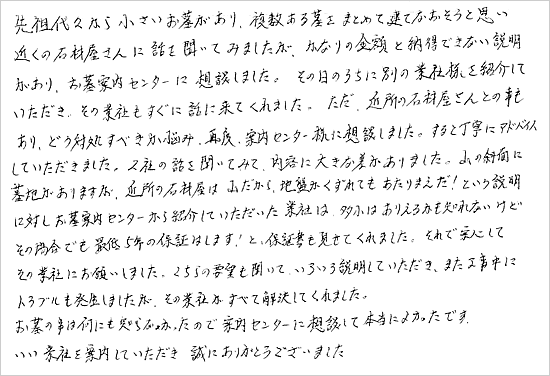 先祖代々なら小さいお墓があり、複数ある墓をまとめて建てなおそうと思い
近くの石材屋さんに話を聞いてみましたが、かなりの金額と納得できない説明
があり、お墓案内センターに相談しました。その日のうちに別の業社様を紹介して
いただき、その業社もすぐに話に来てくれました。ただ、近所の石材屋さんとの事も
あり、どう対処すべきか悩み、再度、案内センター様に相談しました。すると丁寧にアドバイス
していただきました。2社の話を聞いてみて、内容に大きな差がありました。山の斜面に
墓地がありますが、近所の石材屋は山だから、地盤がくずれてもあたりまえだ!という説明
に対しお墓案内センターから紹介していただいた業社は、多少はありえるかも知れないけど
その場合でも最低5年の保証はします!と、保証書も見せてくれました。それで安心して
その業社にお願いしました。こちらの要望も聞いて、いろいろ説明していただき、また工事中に
トラブルも発生しましたが、その業社がすべて解決してくれました。
お墓の事は何にも知らなかったので案内センターに相談して本当によかったです。
いい業社を案内していただき 誠にありがとうございました